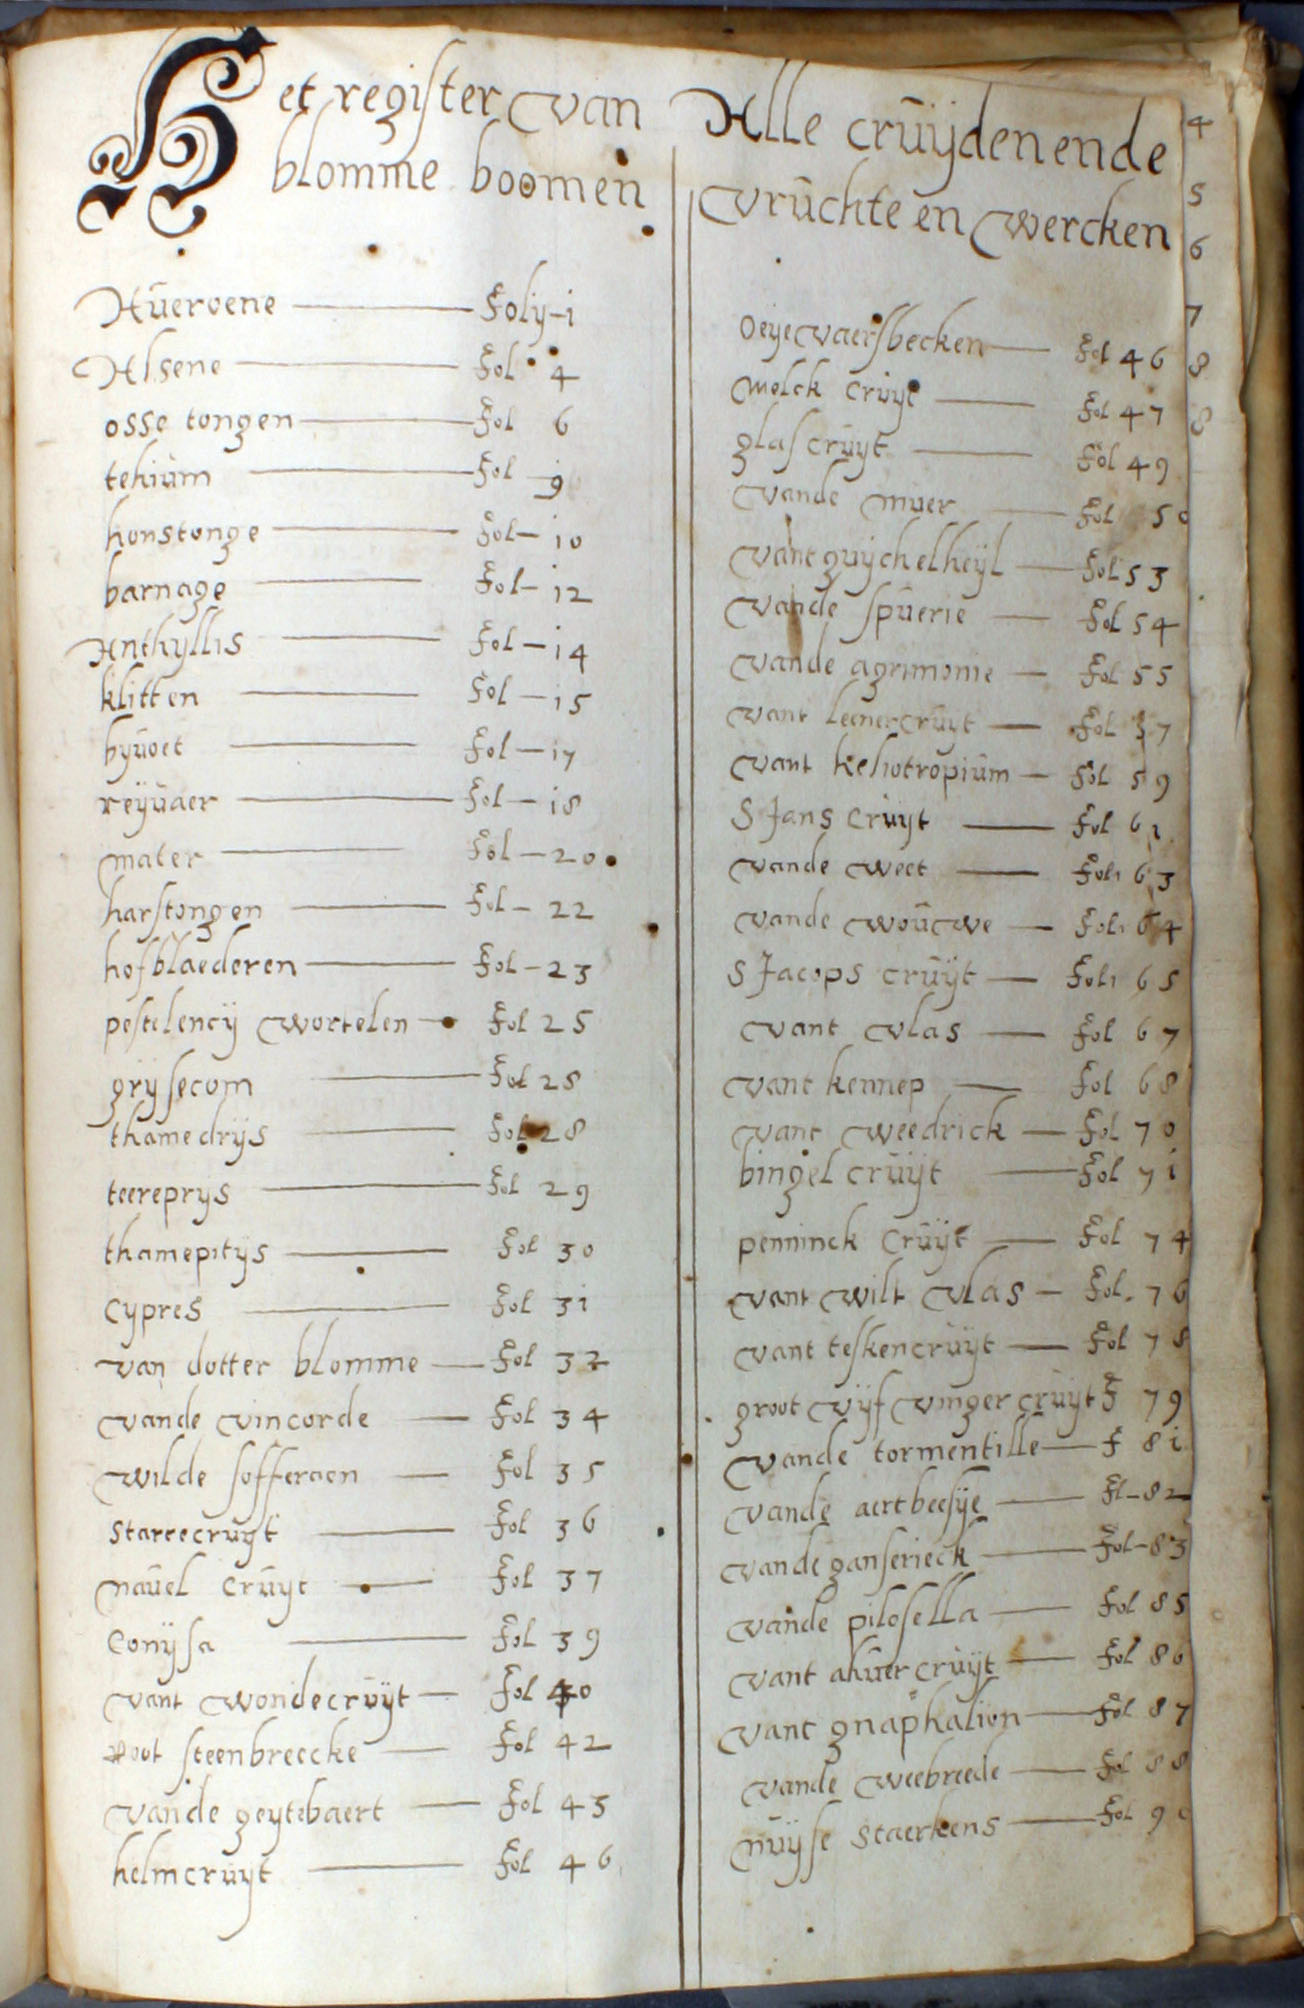 Het register van Alle cruijden ende
blomme boomen vruchte en wercken
Averoene Folij-i
Alsene Fol 4
osse tongen Fol 6
tehium Fol 9
honstonge Fol-io
barnage Fol-i2
Anthyllis Fol-i4
klitten Fol-i5
byvoet Fol-i7
reijvaer Fol-i8
mater Fol-20
harstongen Fol-22
hofblaederen Fol-23
pestelencij wortelen Fol 25
grijsecom Fol 28
thamedrijs Fol 28
teereprijs Fol 29
thamepitijs Fol 30
cypres Fol 3i
van dotter blomme Fol 32
vande vincorde Fol 34
wilde sofferaen Fol 35
starrecruyt Fol 36
navel cruyt Fol 37
conijsa Fol 39
vant wondecruijt Fol 40
Root steenbreecke Fol 42
vande geytebaert Fol 43
helmcruijt Fol 46
oeijevaersbecken Fol 46
melck cruyt Fol 47
glascruyt Fol 49
vande muer Fol 50
vant guijchelheijl Fol 53
vande spuerie Fol 54
vande agrimonie Fol 55
vant leenercruyt Fol 57
vant heliotropium Fol 59
S Jans cruijt Fol 6i
vande weet Foli 63
vande wouwe Foli 64
S Jacops cruijt Foli 65
vant vlas Fol 67
vant kennep Fol 68
vant weedrick Fol 70
bingel cruijt Fol 7i
penninck cruijt Fol 74
vant wilt vlas Fol. 76
vant teskencruijt Fol 78
groot vijf vinger cruijt F 79
vande tormentille F 8i
vande aertbeesije Fl-82
vande ganserieck Fol-83
vande pilosella Fol 85
vant aluercruijt Fol 86
vant gnaphalion Fol 87
vande weebreede Fol 88
nuijse staerkens Fol 90
4
5
6
7
8
8